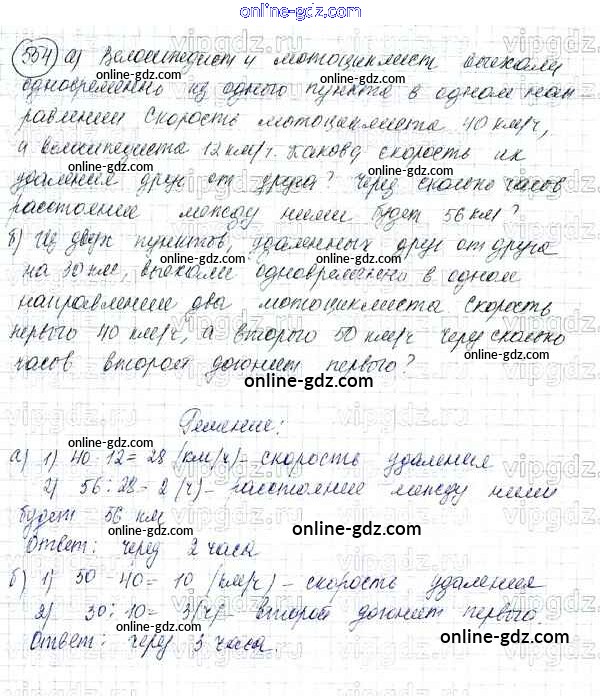 online-gdz.com
554) а) Велосипедист и мотоциклист выехали
online-gdz.com
одновременно из одного пункта в одном нап-
равлении Скорость мотоциклиста 40 км/ч,
а велосипедиста 12 км/ч. Какова скорость их
online-gdz.com
удаления друг от друга? Через сколько часов
расстояние между ними будет 56 км?
online-gdz.com
б) Из двух пунктов, удаленных друг от друга
на 30 км, выехали одновременно в одном
online-gdz.com
направлении два мотоциклиста Скорость
первого 40 км/ч, а второго 50 км/ч Через сколько
online-gdz.com
часов второй догонит первого?
online-gdz.com
Решение:
online-gdz.com
а) 1) 40-12=28 (км/ч)- скорость удаления
online-gdz.com
2) 56:28=2 (ч)- расстояние между ними
будет 56 км
online-gdz.com
Ответ: через 2 часа
online-gdz.com
б) 1) 50-40= 10 (км/ч)- скорость удаления
2) 30:10= 3(ч)- второй догонит первого.
online-gdz.com
Ответ: через 3 часа.
online-gdz.com